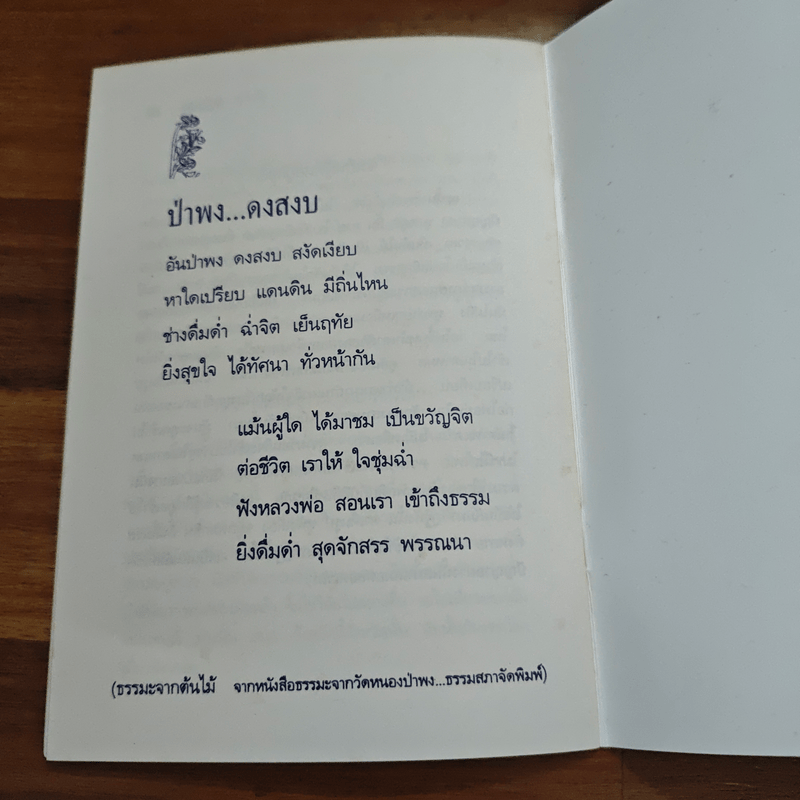 ป่าพง...ดงสงบ
อันป่าพง ดงสงบ สงัดเงียบ
หาใดเปรียบ แดนดิน มีถิ่นไหน
ช่างดื่มด่ำ ฉ่ำจิต เย็นฤทัย
ยิ่งสุขใจ ได้ทัศนา ทั่วหน้ากัน
แม้นผู้ใด ได้มาชม เป็นขวัญจิต
ต่อชีวิต เราให้ ใจชุ่มฉ่ำ
ฟังหลวงพ่อ สอนเรา เข้าถึงธรรม
ยิ่งดื่มด่ำ สุดจักสรร พรรณนา
(ธรรมะจากต้นไม้ จากหนังสือธรรมะจากวัดหนองป่าพง...ธรรมสภาจัดพิมพ์)